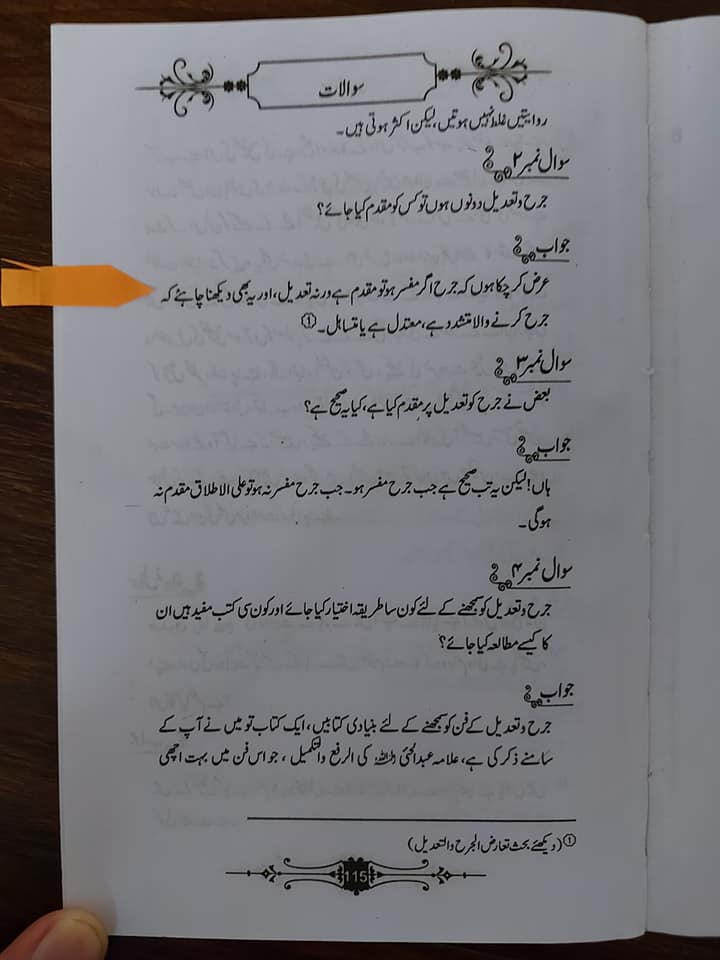 سوالات
روایتیں غلط نہیں ہوتیں، لیکن اکثر ہوتی ہیں۔
سوال نمبر ۲
جرح و تعدیل دونوں ہوں تو کس کو مقدم کیا جائے؟
جواب
عرض کر چکا ہوں کہ جرح اگر مفسر ہو تو مقدم ہے ورنہ تعدیل، اور یہ بھی دیکھنا چاہئے کہ
جرح کرنے والا متشدد ہے، معتدل ہے یا متساہل۔ ①
سوال نمبر ۳
بعض نے جرح کو تعدیل پر مقدم کیا ہے، کیا یہ صحیح ہے؟
جواب
ہاں! لیکن یہ تب صحیح ہے جب جرح مفسر ہو۔ جب جرح مفسر نہ ہو تو علی الاطلاق مقدم نہ
ہوگی۔
سوال نمبر ۴
جرح و تعدیل کو سمجھنے کے لئے کون سا طریقہ اختیار کیا جائے اور کون سی کتب مفید ہیں ان
کا کیسے مطالعہ کیا جائے؟
جواب
جرح و تعدیل کے فن کو سمجھنے کے لئے بنیادی کتابیں، ایک کتاب تو میں نے آپ کے
سامنے ذکر کی ہے، علامہ عبدالحئی رحمہ اللہ کی الرفع والتکمیل، جو اس فن میں بہت اچھی
① (دیکھئے بحث تعارض الجرح والتعدیل)
115